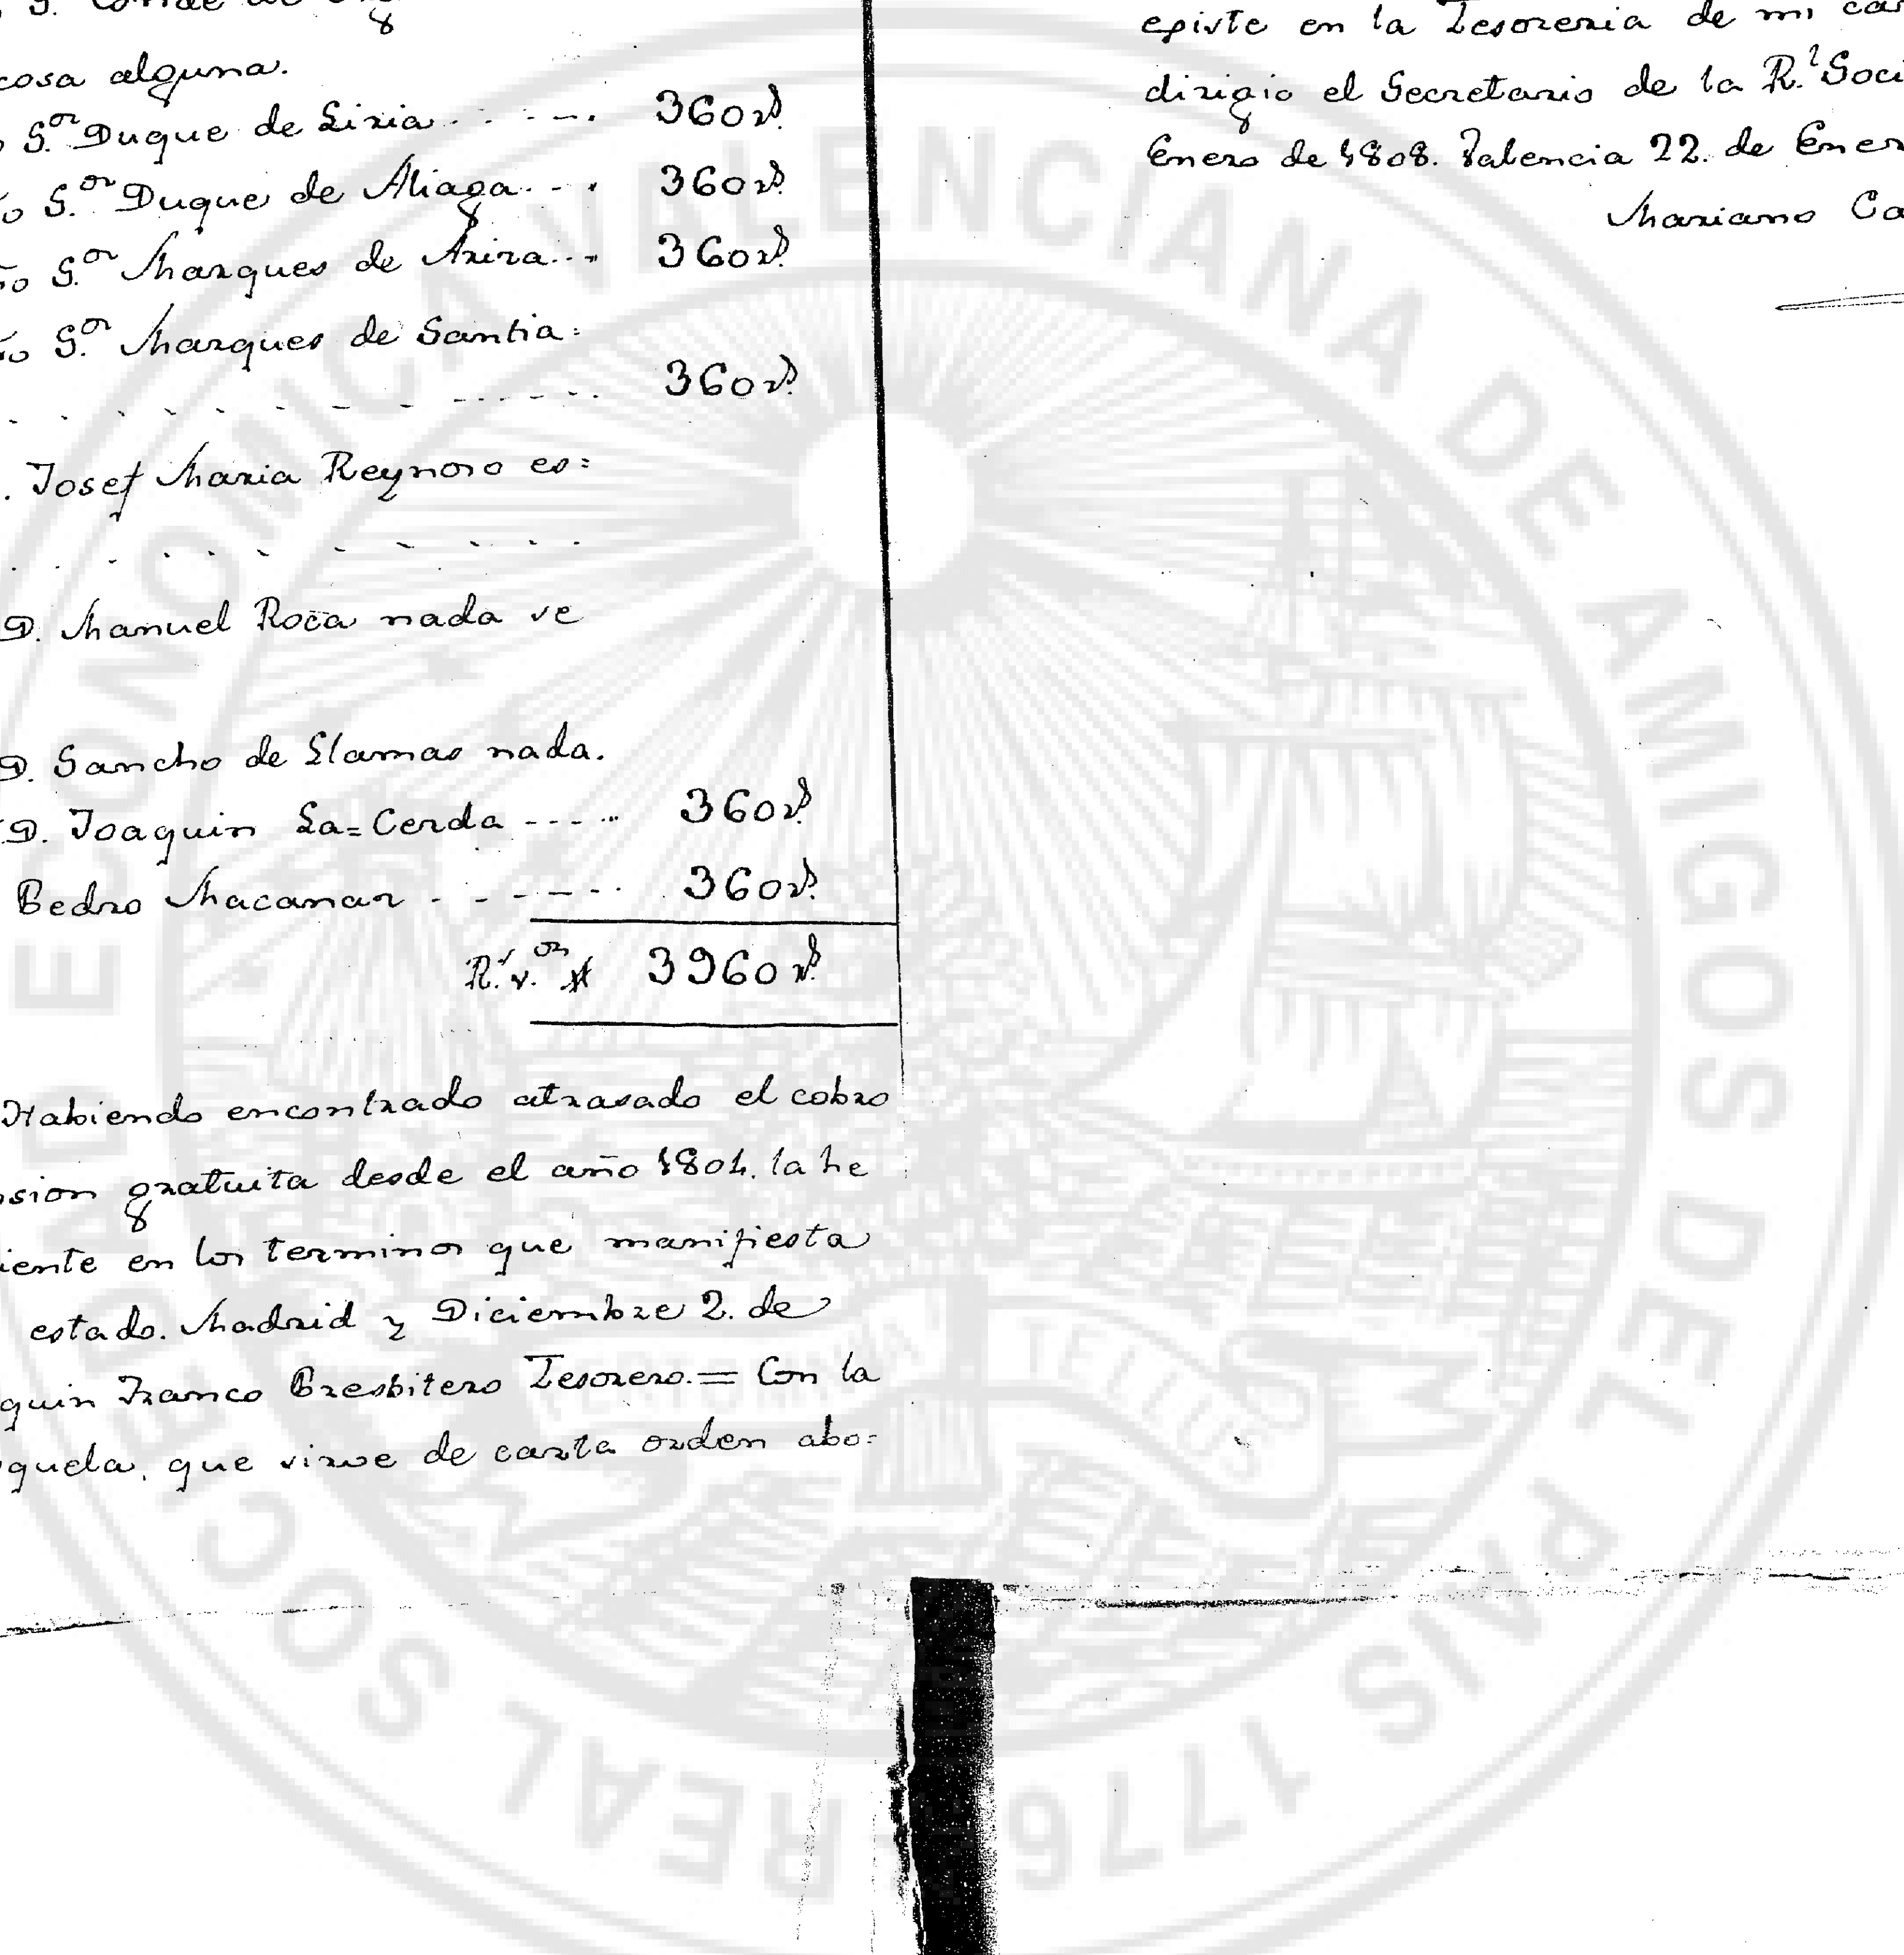 cosa alguna.
S.ᵒʳ Duque de Liria ...... 360 rˢ.
S.ᵒʳ Duque de Aliaga... 360 rˢ.
S.ᵒʳ Marques de Ariza... 360 rˢ.
S.ᵒʳ Marques de Santia=
............ 360 rˢ.
Josef Maria Reynoso es=
D. Manuel Roca nada se
D. Sancho de Llamas nada.
D. Joaquin La=Cerda ----- 360 rˢ.
Pedro Macanar ------- 360 rˢ.
R.ˢ v.ᵒⁿ 3960 rˢ.
Habiendo encontrado atrasado el cobro
sion gratuita desde el año 1804. la he
iente en los terminos que manifiesta
estado. Madrid y Diciembre 2. de
quin Franco Presbitero Tesorero.= Con la
quela, que sirve de carta orden abo=
existe en la Tesoreria de mi car
dirigio el Secretario de la R.ˡ Soci
Enero de 1808. Valencia 22. de Ener
Mariano Ca
REAL SOCIEDAD ECONOMICA VALENCIANA DE AMIGOS DEL PAIS 1776